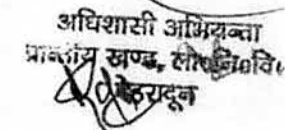 अधिशासी अभियन्ता
प्रान्तीय खण्ड, लो०नि०वि०
देहरादून